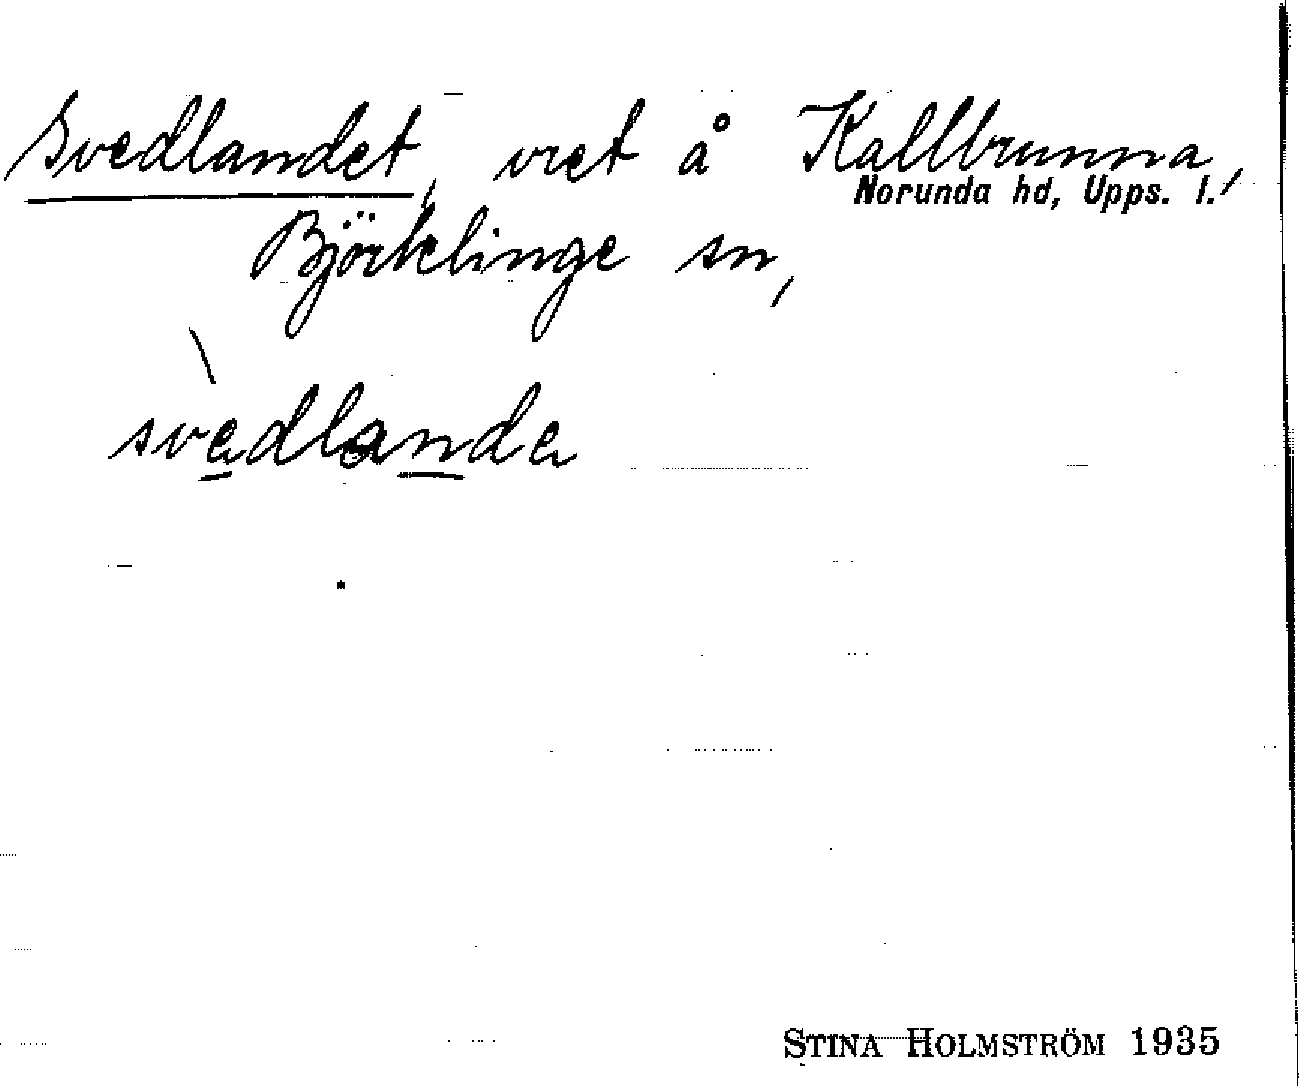 Svedlandet, vret å Kallbrunna,
Norunda hd, Upps. l.
Björklinge sn,
svedlande
STINA HOLMSTRÖM 1935